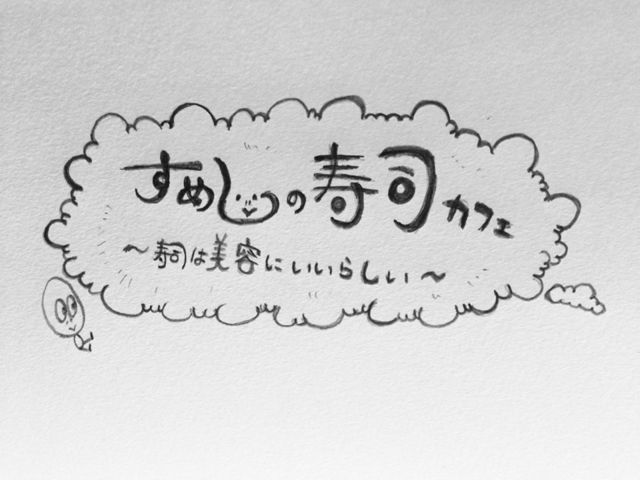 すめしの寿司カフェ
〜寿司は美容にいいらしい〜